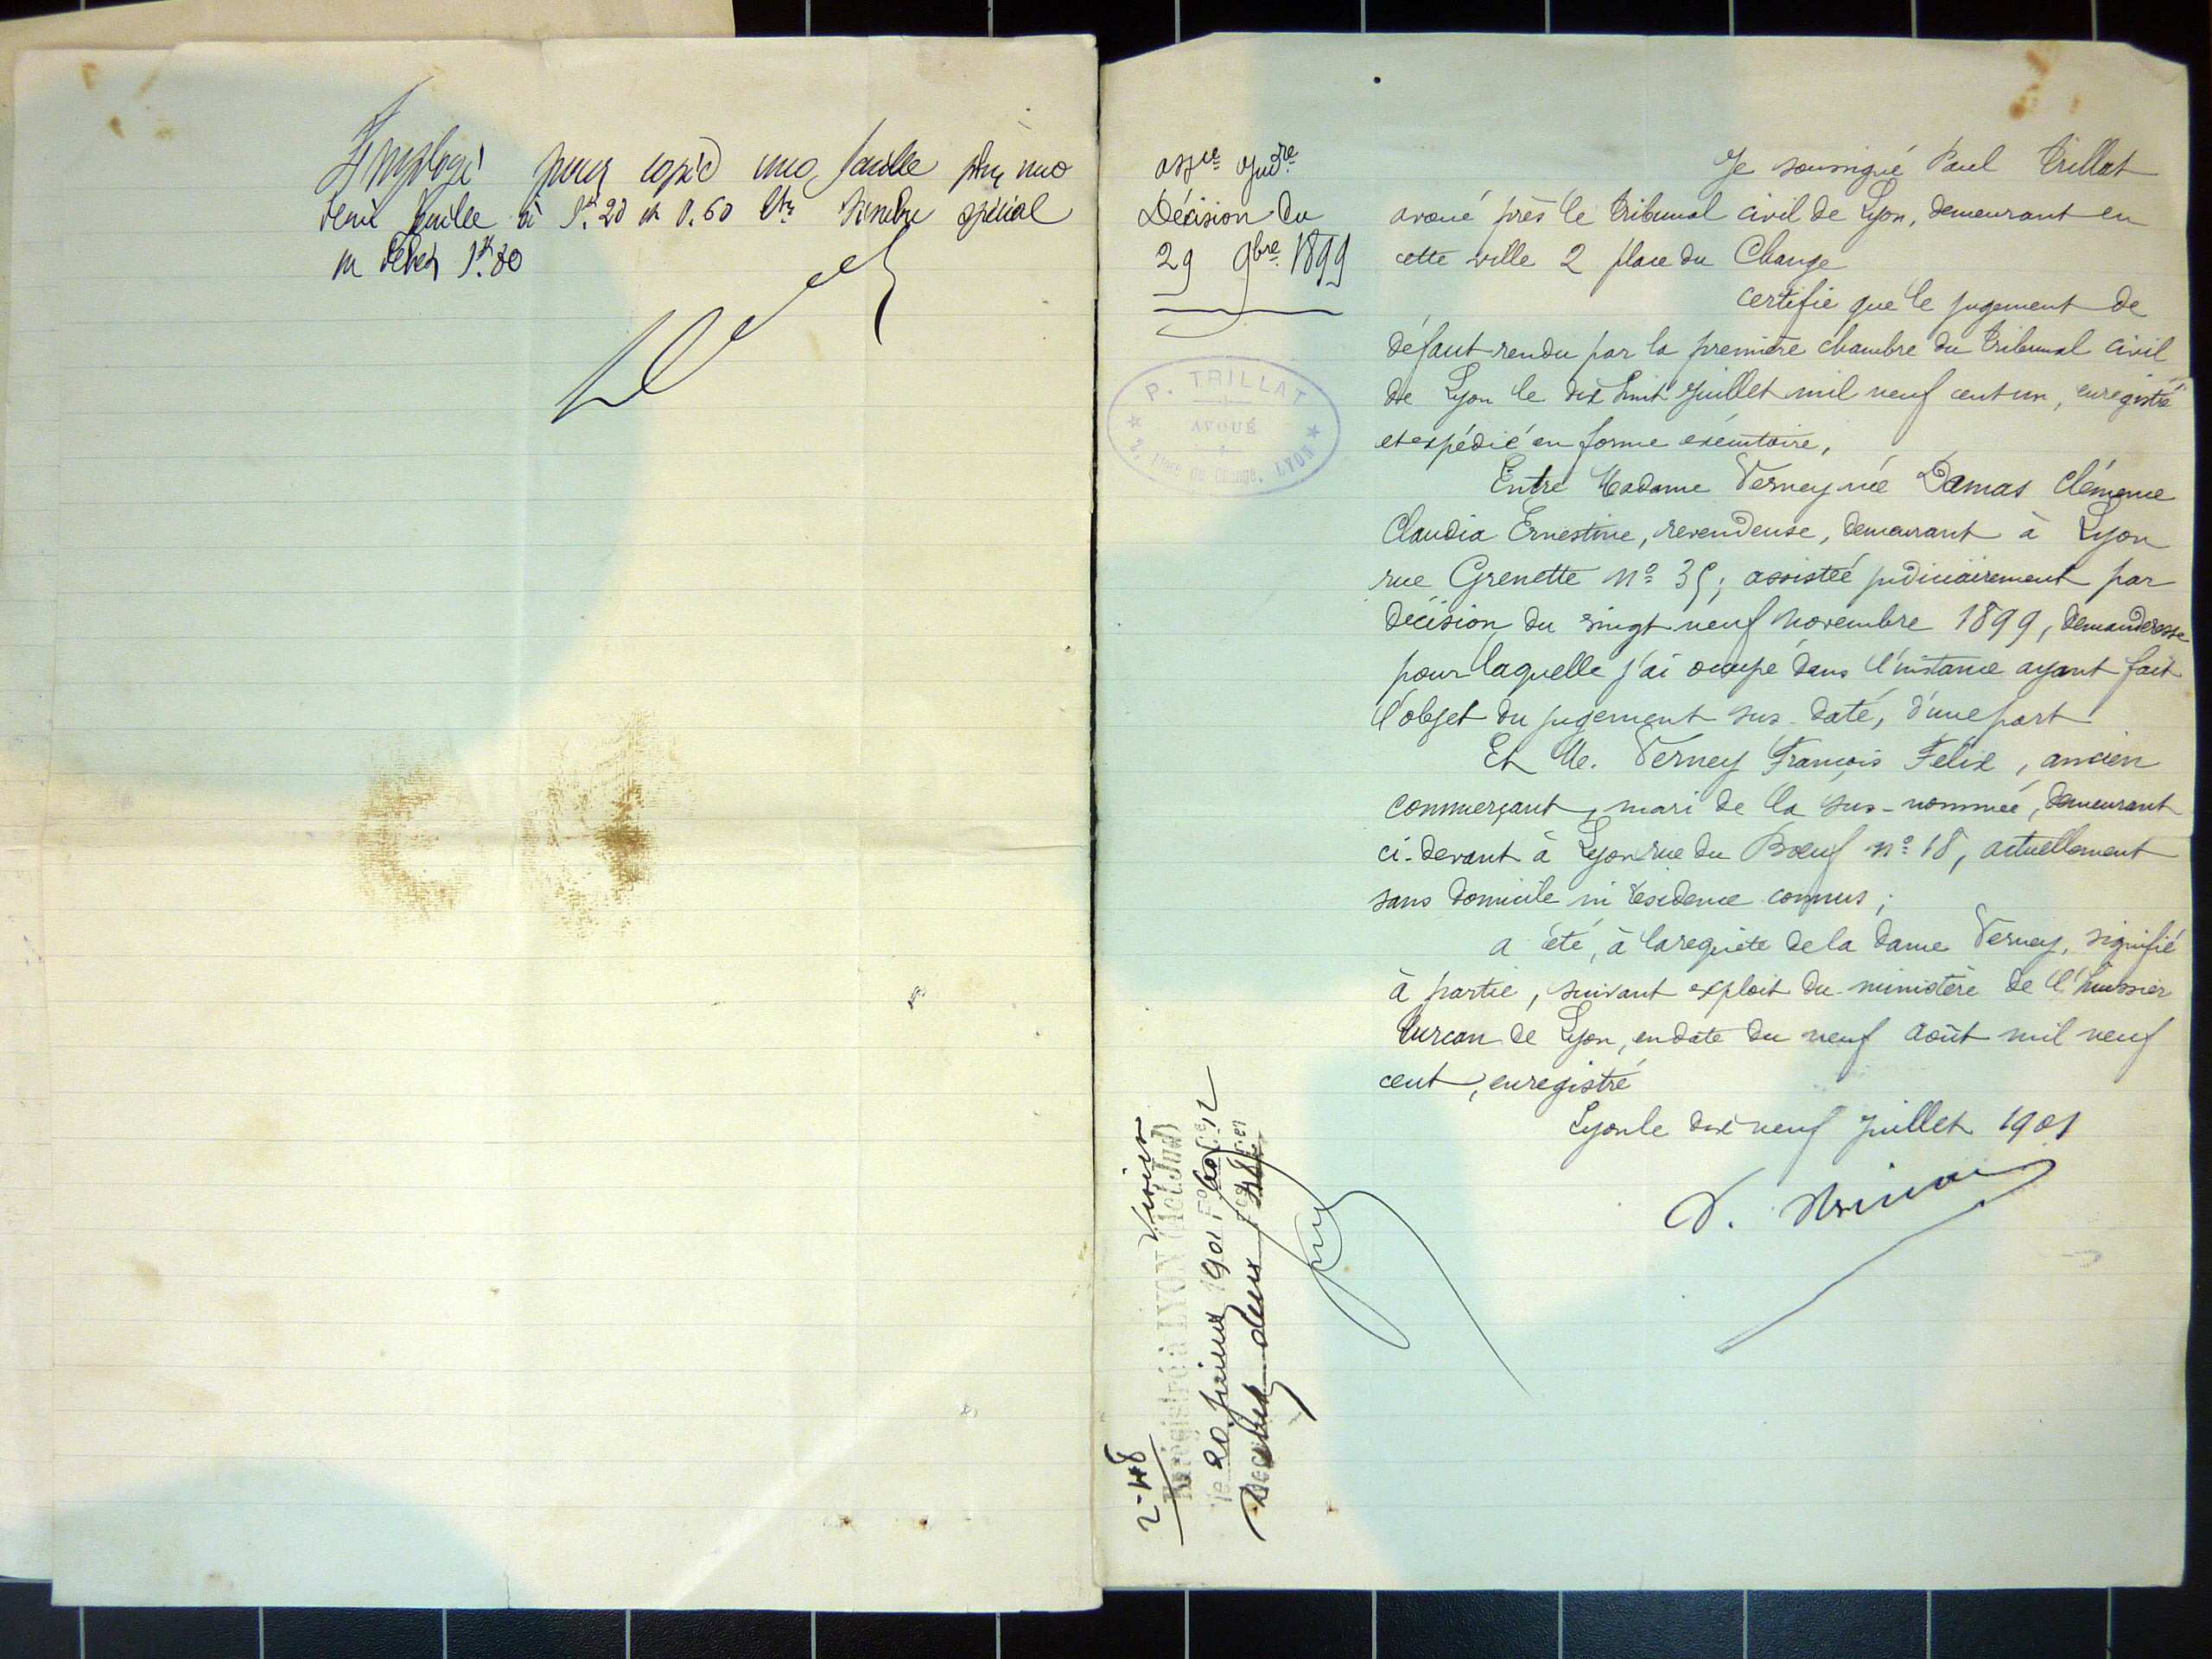 Employé pour copie une feuille plus une
demi feuille à 1f.20 et 0.60 Ctes timbre spécial
en débet 1f.80
assce judre
Décision du
29 9bre 1899
P. TRILLAT
AVOUÉ
2, Place du Change, LYON
Je soussigné Paul Trillat
avoué près le tribunal civil de Lyon, demeurant en
cette ville 2 place du Change
certifie que le jugement de
défaut rendu par la première chambre du tribunal civil
de Lyon le dix huit juillet mil neuf cent un, enregistré
et expédié en forme exécutoire,
Entre Madame Verney née Damas Clémence
Claudia Ernestine, revendeuse, demeurant à Lyon
rue Grenette no 35; assistée judiciairement par
décision du vingt neuf novembre 1899, demanderesse
pour laquelle j'ai occupé dans l'instance ayant fait
l'objet du jugement sus-daté, d'une part
Et M. Verney François Félix, ancien
commerçant, mari de la sus-nommée, demeurant
ci-devant à Lyon rue du Bœuf no 18, actuellement
sans domicile ni résidence connus;
a été, à la requête de la dame Verney, signifié
à partie, suivant exploit du ministère de l'huissier
Turcan de Lyon, en date du neuf août mil neuf
cent, enregistré
Lyon le dix neuf juillet 1901
2-48
Enregistré à LYON (Act. Jud.)
le 20 1901 Fo
deux